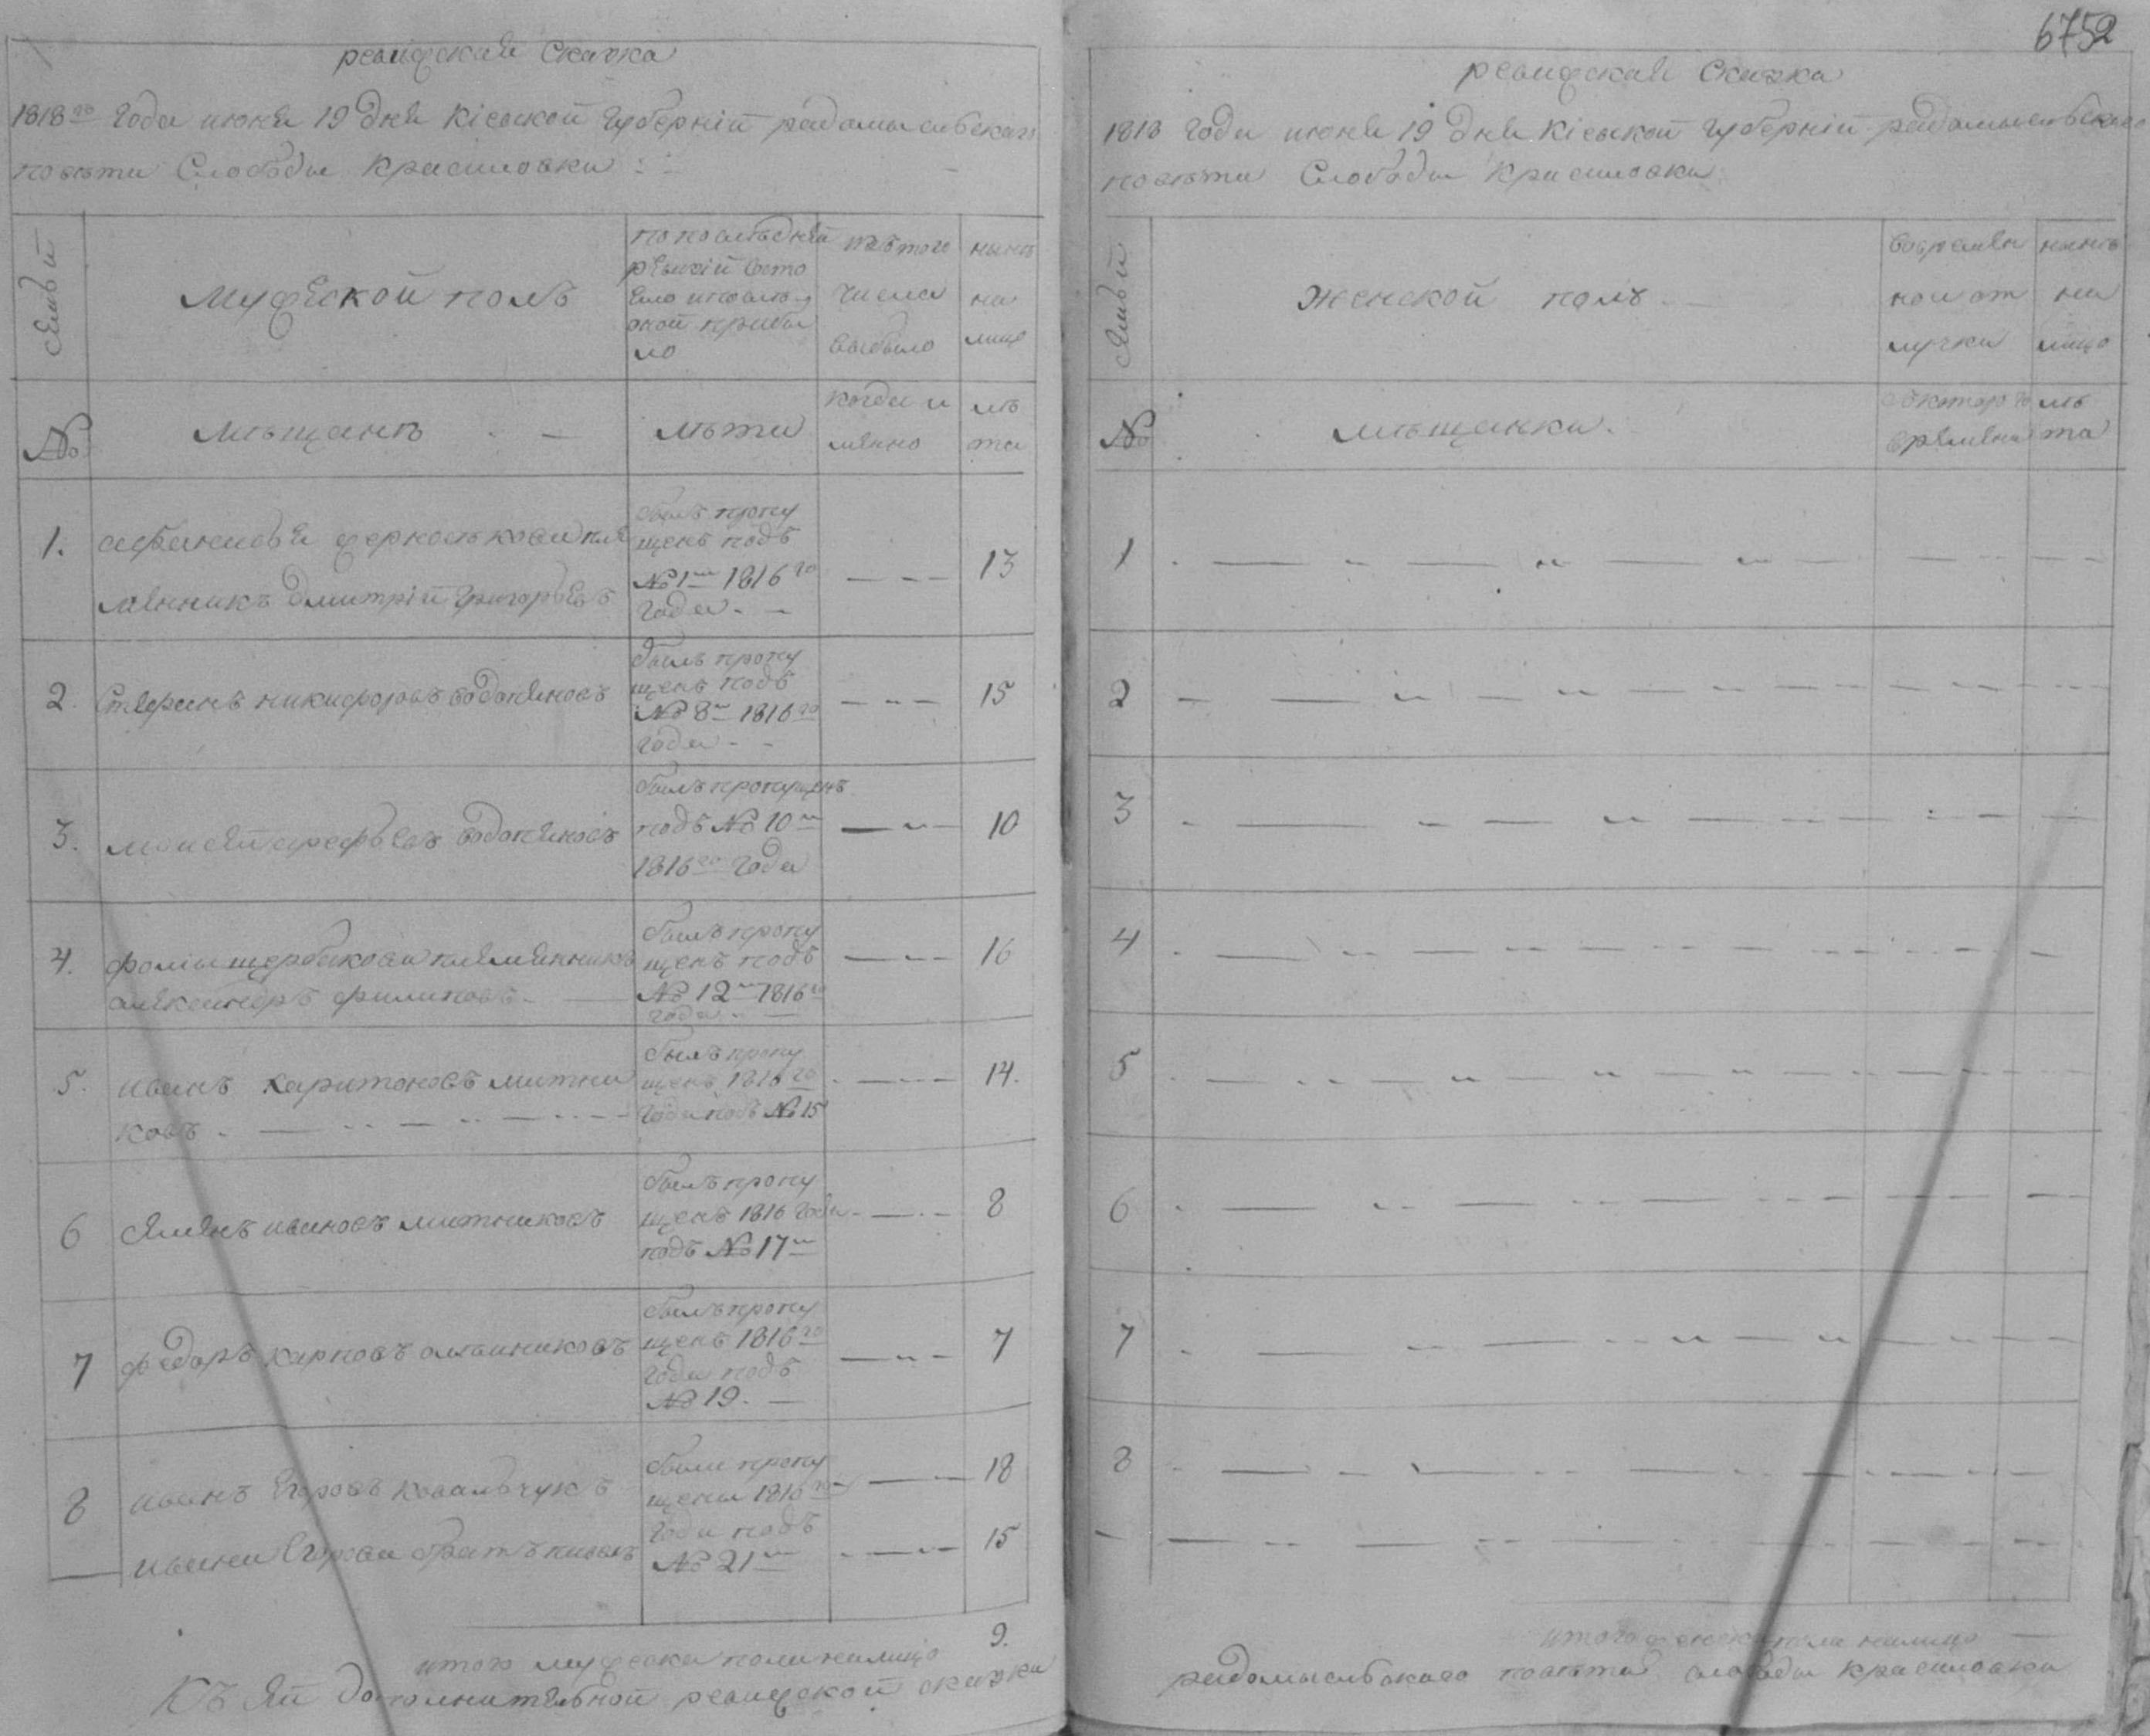 6752
ревижская Сказка
1818го Года июня 19 Дня Кiевской Губернiй радомысльского
повета Слободы Красиловки
Семьи
мужеской полъ
по последней
ревизiй состо
яло и после
оной прибы
ло
изъ того
числа
выбыло
ныне
на
лицо
№
мещане
лета
когда и
менно
ле
та
1.
племянникъ Дмитрiй Григорьевъ
былъ пропу
щенъ подъ
№ 1м 1816го
Года
13
2.
Стефанъ никифоровъ водопяновъ
былъ пропу
щенъ подъ
№ 8м 1816го
года
15
3.
моисей арефьевъ водопяновъ
былъ пропущенъ
подъ № 10м
1816го Года
10
4.
фомы щербакова племянникъ
александръ филиповъ
былъ пропу
щенъ подъ
№ 12м 1816го
года
16
5.
иванъ харитоновъ митни
ковъ
былъ пропу
щенъ 1816го
Года подъ № 15
14.
6
Семенъ ивановъ митниковъ
былъ пропу
щенъ 1816 Года
подъ № 17м
8
7
федоръ карповъ
былъ пропу
щенъ 1816го
Года подъ
№ 19.
7
8
иванъ Егоровъ Ковальчукъ
были пропу
щены 1816го
Года подъ
№ 21м
18
ивана Егорова братъ
15
итого мужеска пола налицо
9.
Къ сей дополнительной ревижской сказки
ревижская Сказка
1818 Года июня 19 Дня Кiевской Губернiй радомысльского
повета Слободы Красиловки
Семьи
женской полъ
во времен
ной от
лучки
ныне
на
лицо
№
мещанки.
съ котораго
времени
ле
та
1
2
3
4
5
6
7
8
итого женска пола налицо
радомысльского повета слободы Красиловки